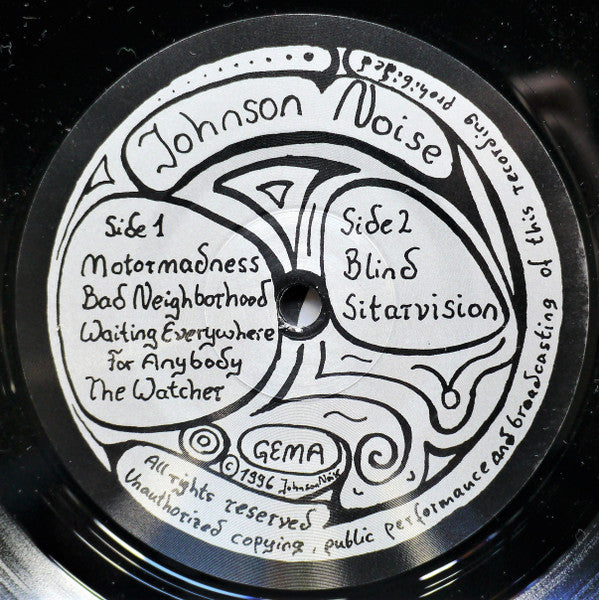 Johnson Noise
Side 1
Motormadness
Bad Neighborhood
Waiting Everywhere
For Anybody
The Watcher
Side 2
Blind
Sitarvision
GEMA
© 1996 Johnson Noise
All rights reserved
Unauthorized copying, public performance and broadcasting of this recording prohibited